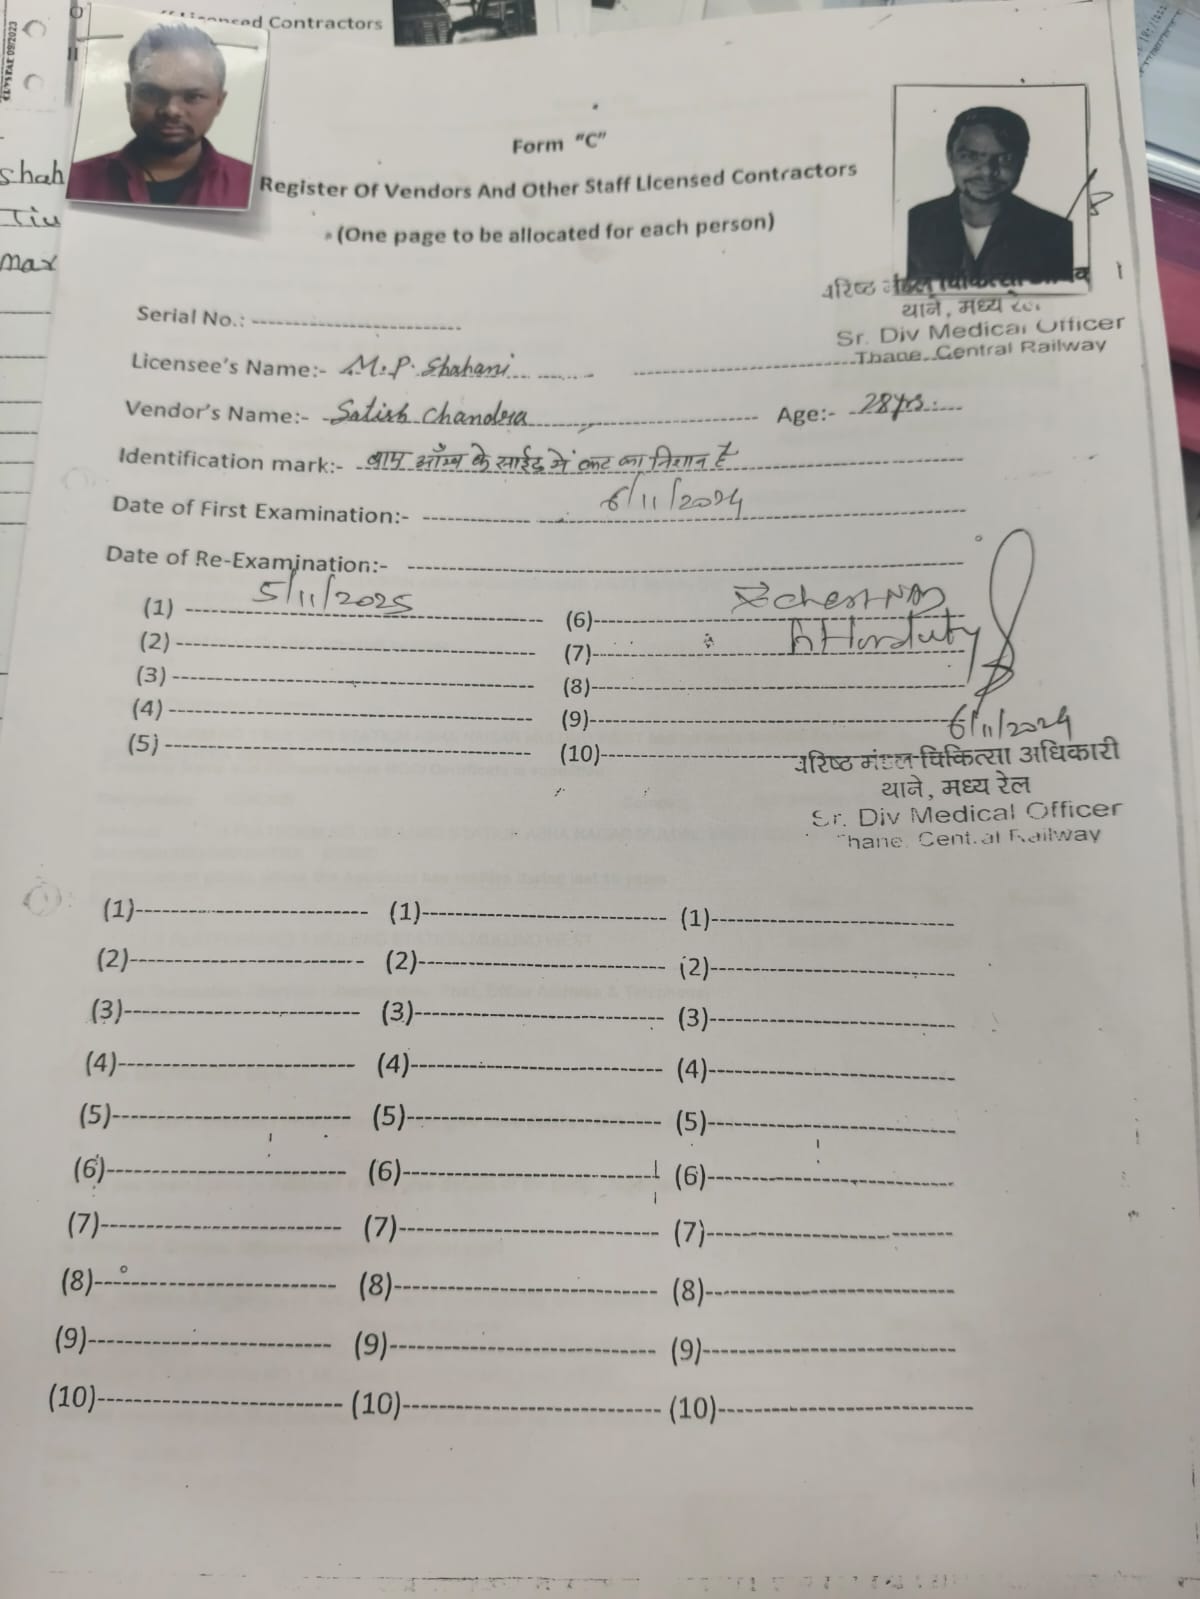 Licensed Contractors
Shah
Form "C"
Register Of Vendors And Other Staff Licensed Contractors
(One page to be allocated for each person)
वरिष्ठ
थाने, मध्य रेल
Sr. Div Medical Officer
Thane, Central Railway
Serial No.:
Licensee's Name:- M.P. Shahani
Vendor's Name:- Satish Chandra Age:- 28yrs.
Identification mark:- बाम आँख के साईड में कट का निशान है
Date of First Examination:- 6/11/2024
Date of Re-Examination:-
(1) 5/11/2025 (6)
(2) (7)
(3) (8)
(4) (9) 6/11/2024
(5) (10)
वरिष्ठ मंडल चिकित्सा अधिकारी
थाने, मध्य रेल
Sr. Div Medical Officer
Thane, Central Railway
(1) (1) (1)
(2) (2) (2)
(3) (3) (3)
(4) (4) (4)
(5) (5) (5)
(6) (6) (6)
(7) (7) (7)
(8) (8) (8)
(9) (9) (9)
(10) (10) (10)